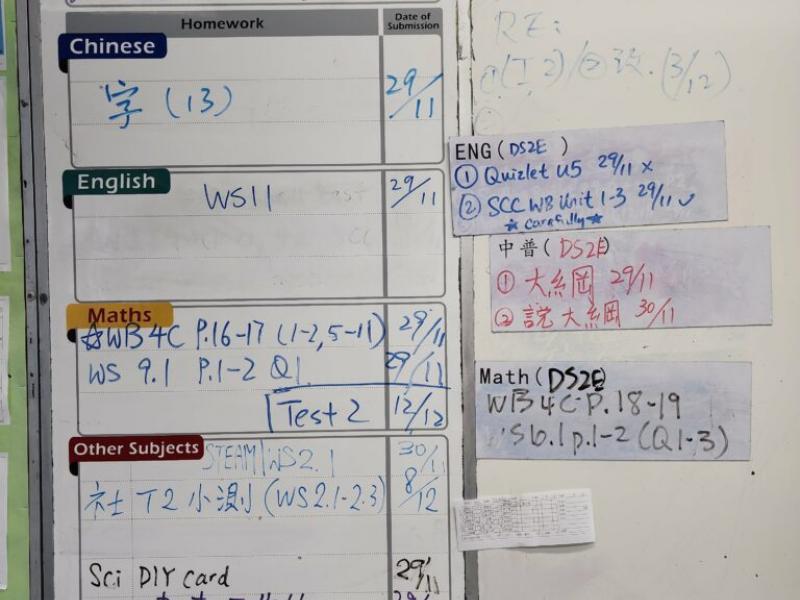 Homework
Date of Submission
Chinese
字 (13) 29/11
English
WS11 29/11
Maths
☆WB 4C P.16-17 (1-2, 5-11) 29/11
WS 9.1 P.1-2 Q1 29/11
Test 2 12/12
Other Subjects
STEAM WS2.1 30/11
社 T2 小測 (WS 2.1-2.3) 8/12
Sci DIY card 29/11
RE:
① (T2)/② 改. (3/12)
ENG (DS2E)
① Quizlet U5 29/11 x
② SCC WB Unit 1-3 29/11 ✓
★ carefully ★
中普 (DS2E)
① 大綱 29/11
② 說大綱 30/11
Math (DS2E)
WB 4C P.18-19
S6.1 p.1-2 (Q1-3)